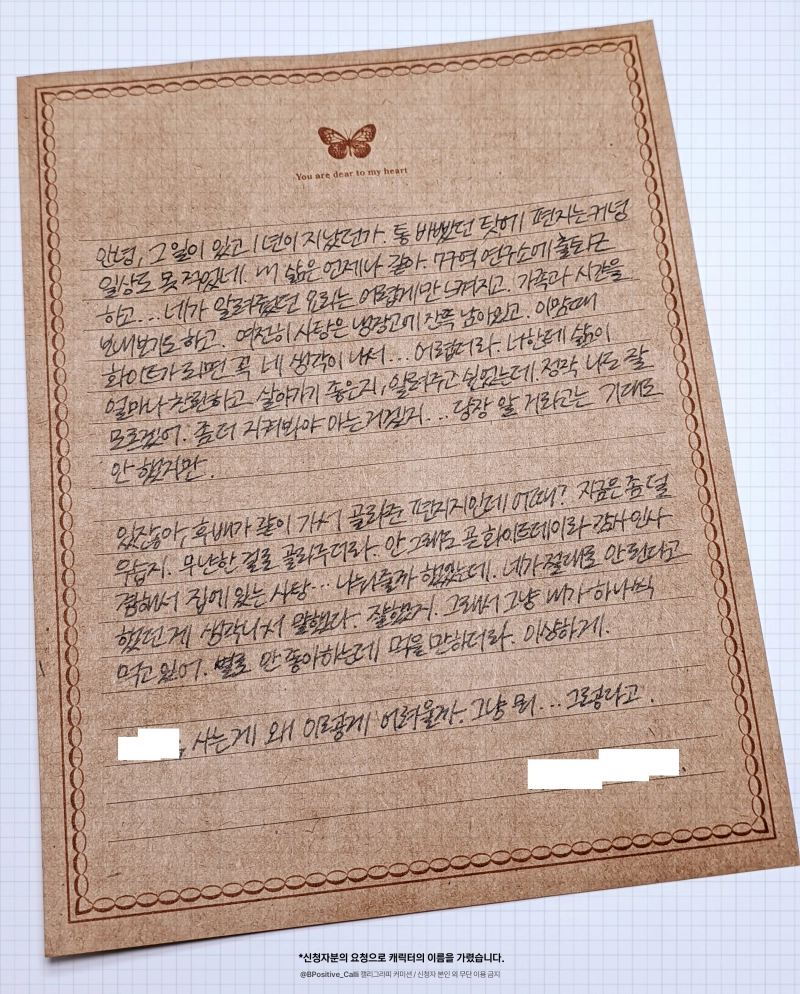 You are dear to my heart
안녕, 그 일이 있고 1년이 지났던가. 통 바빴던 탓에 편지는커녕
일상도 못 적었네. 내 삶은 언제나 같아. 77역 연구소에 출퇴근
하고... 네가 알려줬던 요리는 어렵게만 느껴지고. 가족과 시간을
보내보기도 하고. 여전히 사탕은 냉장고에 잔뜩 남아있고. 이맘때
화이트가 되면 꼭 네 생각이 나서... 어렵더라. 너한테 삶이
얼마나 찬란하고 살아가기 좋은지, 알려주고 싶었는데. 정작 나도 잘
모르겠어. 좀 더 지켜봐야 아는 거겠지... 당장 알 거라고는 기대도
안 했지만.
있잖아, 후배가 같이 가서 골라준 편지지인데 어때? 지금은 좀 덜
무난한 걸로 골라주더라. 안 그래도 곧 화이트데이라 감사 인사
겸해서 집에 있는 사탕... 나눠줄까 했었는데. 네가 절대로 안 된다고
했던 게 생각나서 말했다. 잘했지. 그래서 그냥 내가 하나씩
먹고 있어. 별로 안 좋아하는데 먹을 만하더라. 이상하게.
, 사는 게 왜 이렇게 어려울까. 그냥 뭐... 그렇다고.
*신청자분의 요청으로 캐릭터의 이름을 가렸습니다.
@BPositive_Calli 캘리그라피 커미션 / 신청자 본인 외 무단 이용 금지